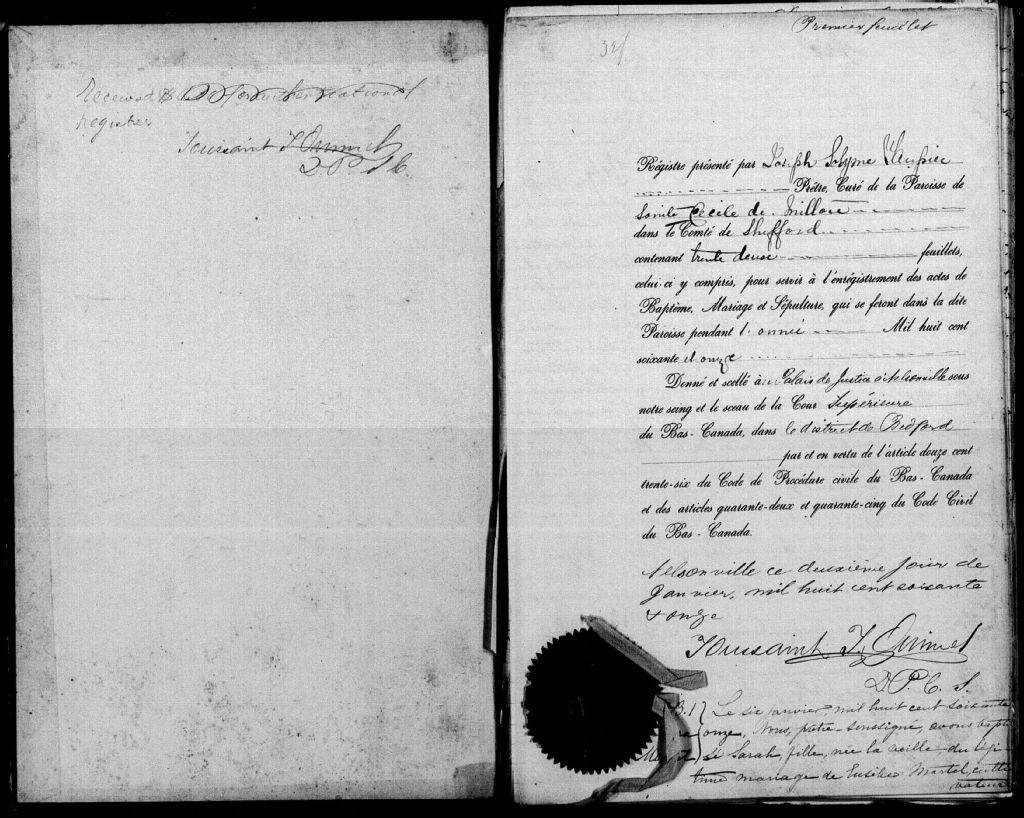 Received
register
Toussaint T. Ouimet
D. P.
Premier feuillet
32f
Régistre présenté par Joseph Solyme
Prêtre, Curé de la Paroisse de
Sainte Cecile de Milton
dans le Comté de Shefford
contenant trente deux feuillets,
celui-ci y compris, pour servir à l'enrégistrement des actes de
Baptême, Mariage et Sépulture, qui se feront dans la dite
Paroisse pendant l'année Mil huit cent
soixante et onze
Donné et scellé au Palais de Justice à Nelsonville sous
notre seing et le sceau de la Cour Supérieure
du Bas-Canada, dans le district de Bedford
par et en vertu de l'article douze cent
trente-six du Code de Procédure civile du Bas-Canada
et des articles quarante-deux et quarante-cinq du Code Civil
du Bas-Canada.
Nelsonville ce deuxième jour de
Janvier, mil huit cent soixante
& onze
Toussaint T. Ouimet
D. P. C. S.
B. 1 Le six janvier mil huit cent soixante
onze, Nous, prêtre soussigné, avons bapti
sé Sarah, fille, née la veille du légi-
time mariage de Eusèbe Martel, culti
vateur